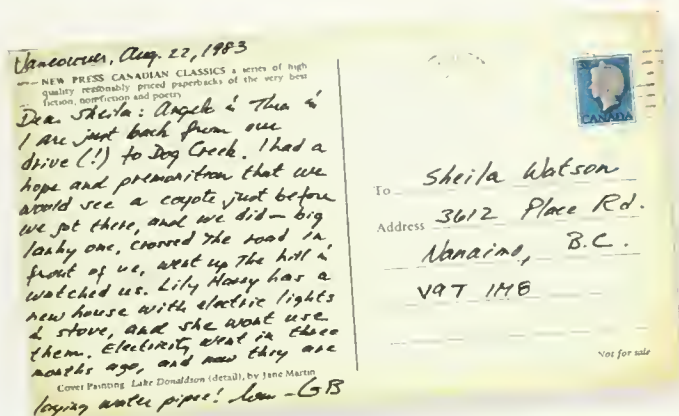 Vancouver, Aug. 22, 1983
NEW PRESS CANADIAN CLASSICS a series of high
quality reasonably priced paperbacks of the very best
fiction, nonfiction and poetry
Dear Sheila: Angela & Thea &
I are just back from our
drive (!) to Dog Creek. I had a
hope and premonition that we
would see a coyote just before
we got there, and we did — big
lanky one, crossed the road in
front of us, went up the hill &
watched us. Lily Harry has a
new house with electric lights
& stove, and she wont use
them. Electricity went in three
months ago, and now they are
Cover Painting Lake Donaldson (detail), by Jane Martin
laying water pipes! love — GB
CANADA
To Sheila Watson
Address 3612 Place Rd.
Nanaimo, B.C.
V9T 1M8
Not for sale